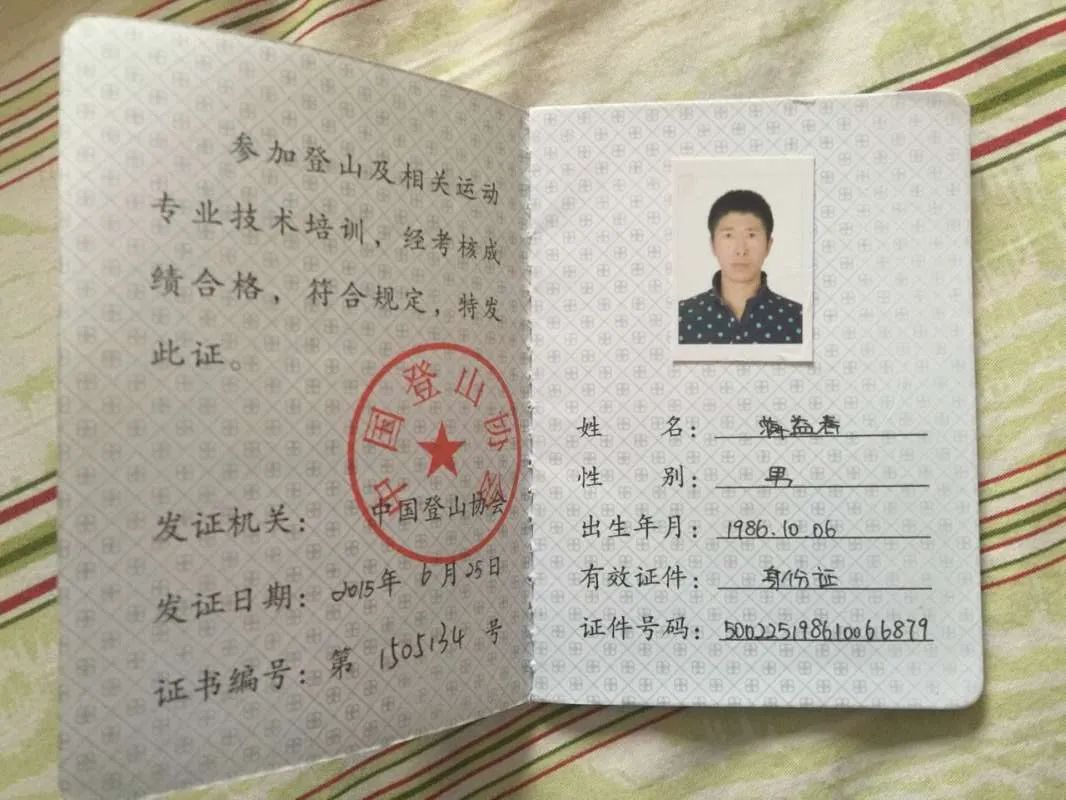 参加登山及相关运动
专业技术培训，经考核成
绩合格，符合规定，特发
此证。
中国登山协会
发证机关：中国登山协会
发证日期：2015年 6月25日
证书编号：第 1505134 号
姓 名：益春
性 别：男
出生年月：1986.10.06
有效证件：身份证
证件号码：500225198610066879